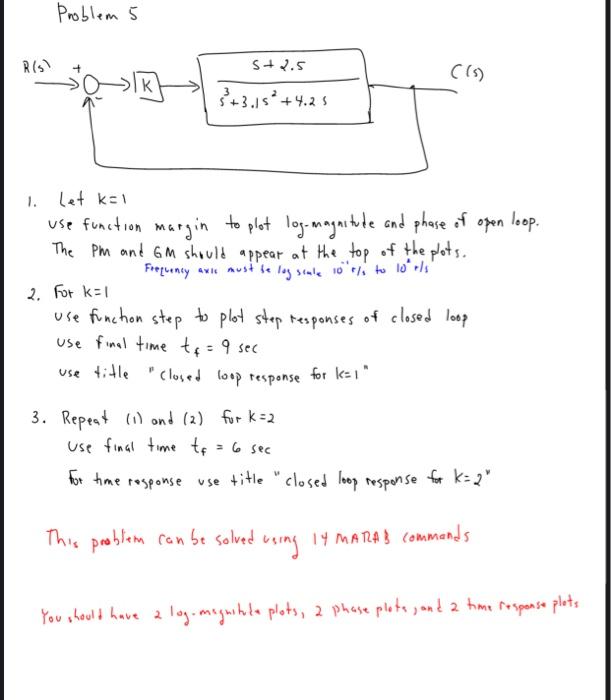 Problem 5
R(s) + - K
s+2.5
s³+3.1s²+4.2s
C(s)
1. Let k=1
use function margin to plot log-magnitude and phase of open loop.
The PM and GM should appear at the top of the plots.
Frequency axis must be log scale 10⁻¹ r/s to 10² r/s
2. For k=1
use function step to plot step responses of closed loop
use final time t_f = 9 sec
use title "closed loop response for k=1"
3. Repeat (1) and (2) for k=2
use final time t_f = 6 sec
For time response use title "closed loop response for k=2"
This problem can be solved using 14 MATLAB commands
You should have 2 log-magnitude plots, 2 phase plots, and 2 time response plots